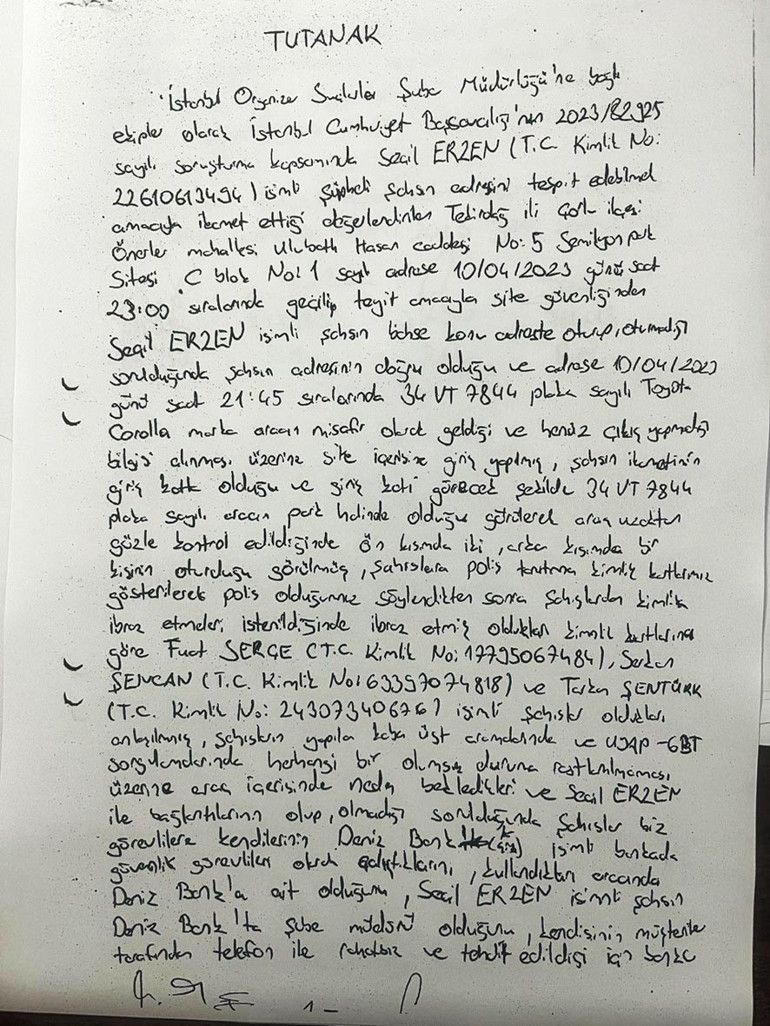 TUTANAK
İstanbul Organize Suçlarla Şube Müdürlüğü'ne bağlı
ekipler olarak İstanbul Cumhuriyet Başsavcılığı'nın 2023/82925
sayılı soruşturma kapsamında Seçil ERZEN (T.C. Kimlik No:
22610613494) isimli şüpheli şahsın adresini tespit edebilmek
amacıyla ikamet ettiği değerlendirilen Tekirdağ ili Çorlu ilçesi
Önerler mahallesi Ulubatlı Hasan caddesi No: 5 park
Sitesi C blok No: 1 sayılı adrese 10/04/2023 günü saat
23:00 sıralarında geçilip teyit amacıyla site güvenliğinden
Seçil ERZEN isimli şahsın bahse konu adreste oturup, oturmadığı
sorulduğunda şahsın adresinin doğru olduğu ve adrese 10/04/2023
günü saat 21:45 sıralarında 34 VT 7844 plaka sayılı Toyota
Corolla marka aracın misafir olarak geldiği ve henüz çıkış yapmadığı
bilgisi alınması üzerine site içerisine giriş yapılmış, şahsın ikametinin
giriş katta olduğu ve giriş katı görecek şekilde 34 VT 7844
plaka sayılı aracın park halinde olduğu görülerek araç uzaktan
gözle kontrol edildiğinde ön kısımda iki, arka kısımda bir
kişinin oturduğu görülmüş, şahıslara polis tanıtma kimlik kartlarımız
gösterilerek polis olduğumuz söylendikten sonra şahıslardan kimlik
ibraz etmeleri istenildiğinde ibraz etmiş oldukları kimlik kartlarına
göre Fuat SERGE (T.C. Kimlik No: 17795067484), Serkan
ŞENCAN (T.C. Kimlik No: 63397074818) ve Tarkan ŞENTÜRK
(T.C. Kimlik No: 24307340676) isimli şahıslar oldukları
anlaşılmış, şahısların yapılan kaba üst aramalarında ve UYAP-GBT
sorgulamalarında herhangi bir olumsuz duruma rastlanılmaması
üzerine araç içerisinde neden bekledikleri ve Seçil ERZEN
ile bağlantılarının olup, olmadığı sorulduğunda şahıslar biz
görevlilere kendilerinin Deniz Bank isimli bankada
güvenlik görevlileri olarak çalıştıklarını, kullandıkları aracında
Deniz Bank'a ait olduğunu, Seçil ERZEN isimli şahsın
Deniz Bank'ta şube müdürü olduğunu, kendisinin müşteriler
tarafından telefon ile rahatsız ve tehdit edildiği için banka